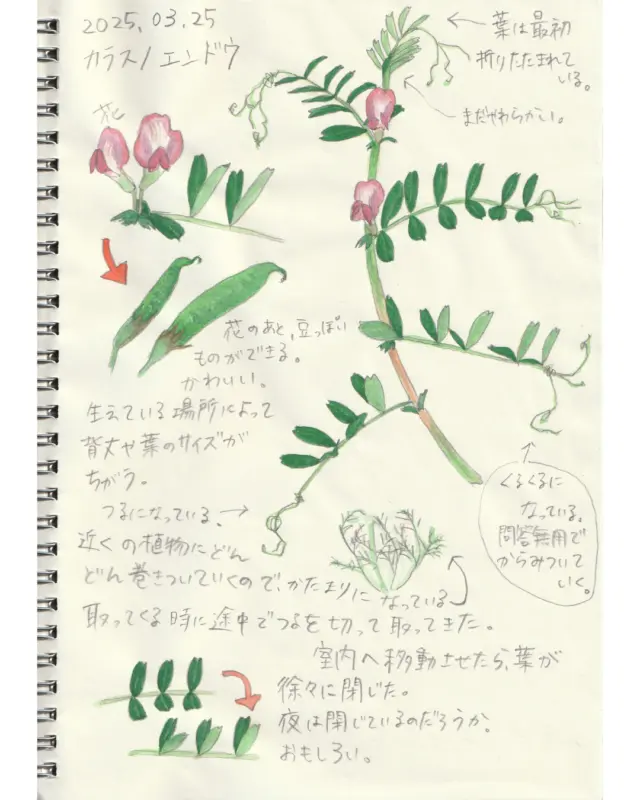 2025.03.25
カラスノエンドウ
←葉は最初
折りたたまれて
いる。
まだやわらかい。
花
花のあと、豆っぽい
ものができる。
かわいい。
生えている場所によって
背丈や葉のサイズが
ちがう。
つるになっている。→
近くの植物にどん
どん巻きついていくので、かたまりになっている
取ってくる時に途中でつるを切って取ってきた。
くるくるに
なっている。
問答無用で
からみついて
いく。
室内へ移動させたら、葉が
徐々に閉じた。
夜は閉じているのだろうか。
おもしろい。